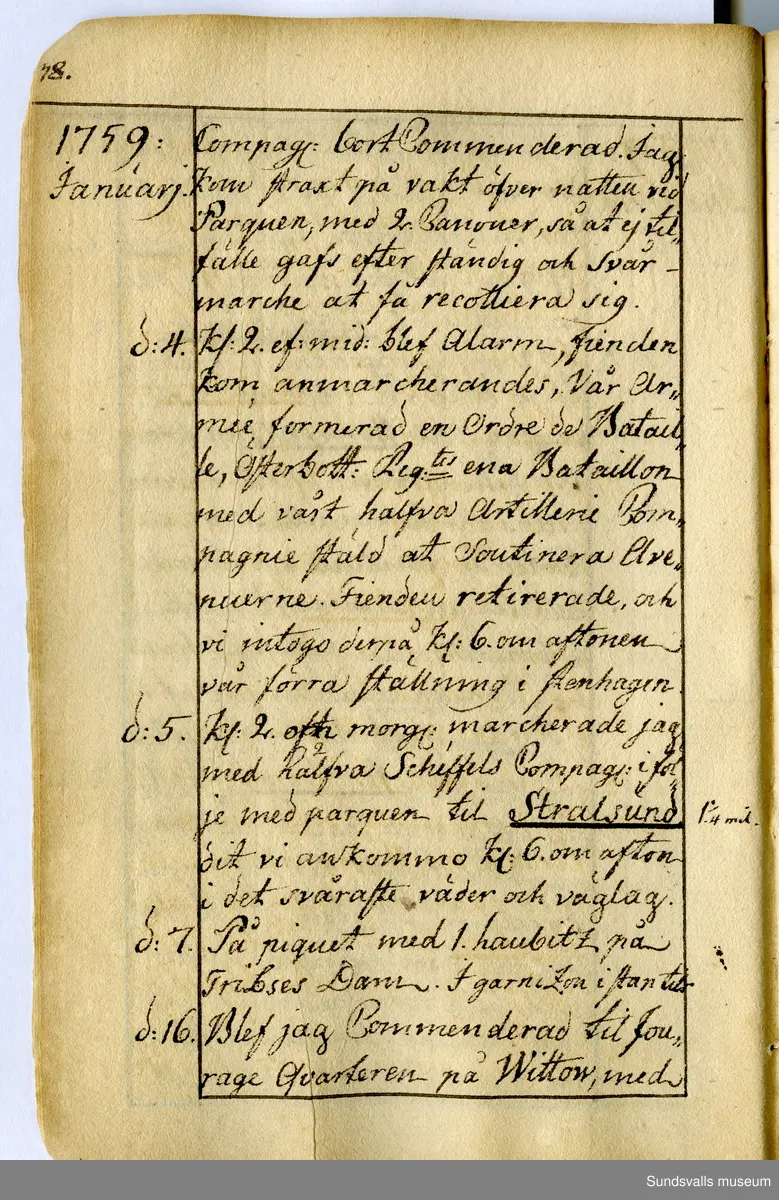 78.
1759: Compagn: bort Commenderad. Jag
Januarj. kom straxt på vakt öfver natten vid
Parquen, med 2. Canoner, så at ej til„
fälle gafs efter ständig och svår
marche at få recolliera sig.
d: 4. Kl: 2. ef: mid: blef Alarm, fienden
kom anmarcherandes, Vår Ar„
méé formerad en Ordre de Batail„
le, Österbott: Reg:tts ena Bataillon
med vårt halfva Artillerie Com„
pagnie stäld at Soutinera Ave„
nuerne. Fienden retirerade, och
vi intogo derpå Kl: 6. om aftonen
vår förra ställning i Stenhagen.
d: 5. Kl: 2. morg: marcherade jag
med halfva Scheffels Compag: i föl„
je med parquen til Stralsund 1 1/4 mil.
dit vi ankommo Kl: 6. om afton
i det svåraste väder och väglag.
d: 7. På piquet med 1. haubitz på
Tribses Dam. I garnizon i stan til
d: 16. Blef jag Commenderad til Fou„
rage Qvarteren på Wittow, med
Sundsvalls museum